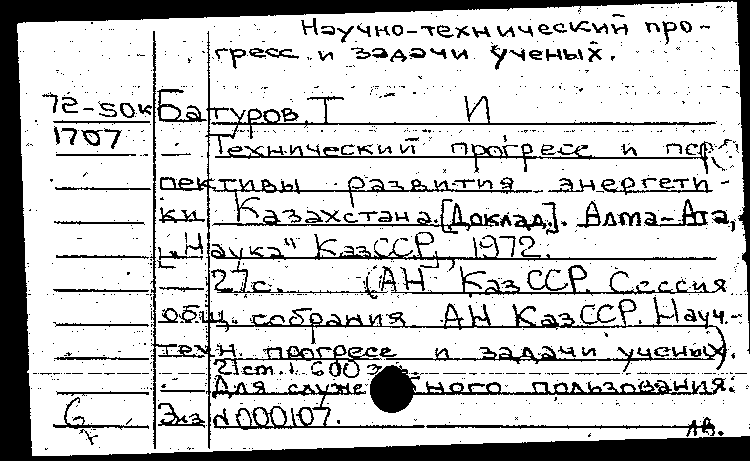 Научно-технический про-
гресс и задачи ученых.
72-50к Батуров Т И
1707
Технический прогресс и перс
пективы развития энергети-
ки Казахстана. [Доклад]. Алма-Ата,
„Наука" КазССР, 1972.
27с. (АН КазССР. Сессия
общ. собрания АН КазССР. Науч.-
техн. прогресс и задачи ученых).
21cm. 600
Для служебного пользования.
Экз N000107.